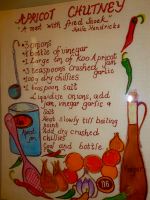 APRICOT CHUTNEY
"A meet with fried Snoek"
Hendricks
3 onions
1 bottle of vinegar
1 Large tin of Koo Apricot
jam
3 teaspoons crushed
garlic
100g dry chillies
1 teaspoon salt
Liquidise onions, add
jam, vinegar garlic &
salt
Heat slowly till boiling
point
Add dry crushed
chillies
Seal and bottle
Apricot
Jam
Vinegar
116